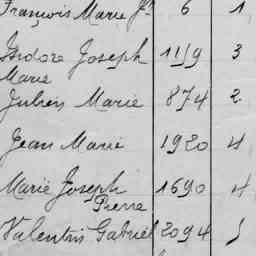 François Marie Jh 6 1
Isidore Joseph 1119 3
Marie
Julien Marie 874 2
Jean Marie 1920 4
Marie Joseph 1690 4
Pierre
Valentin Gabriel 2094